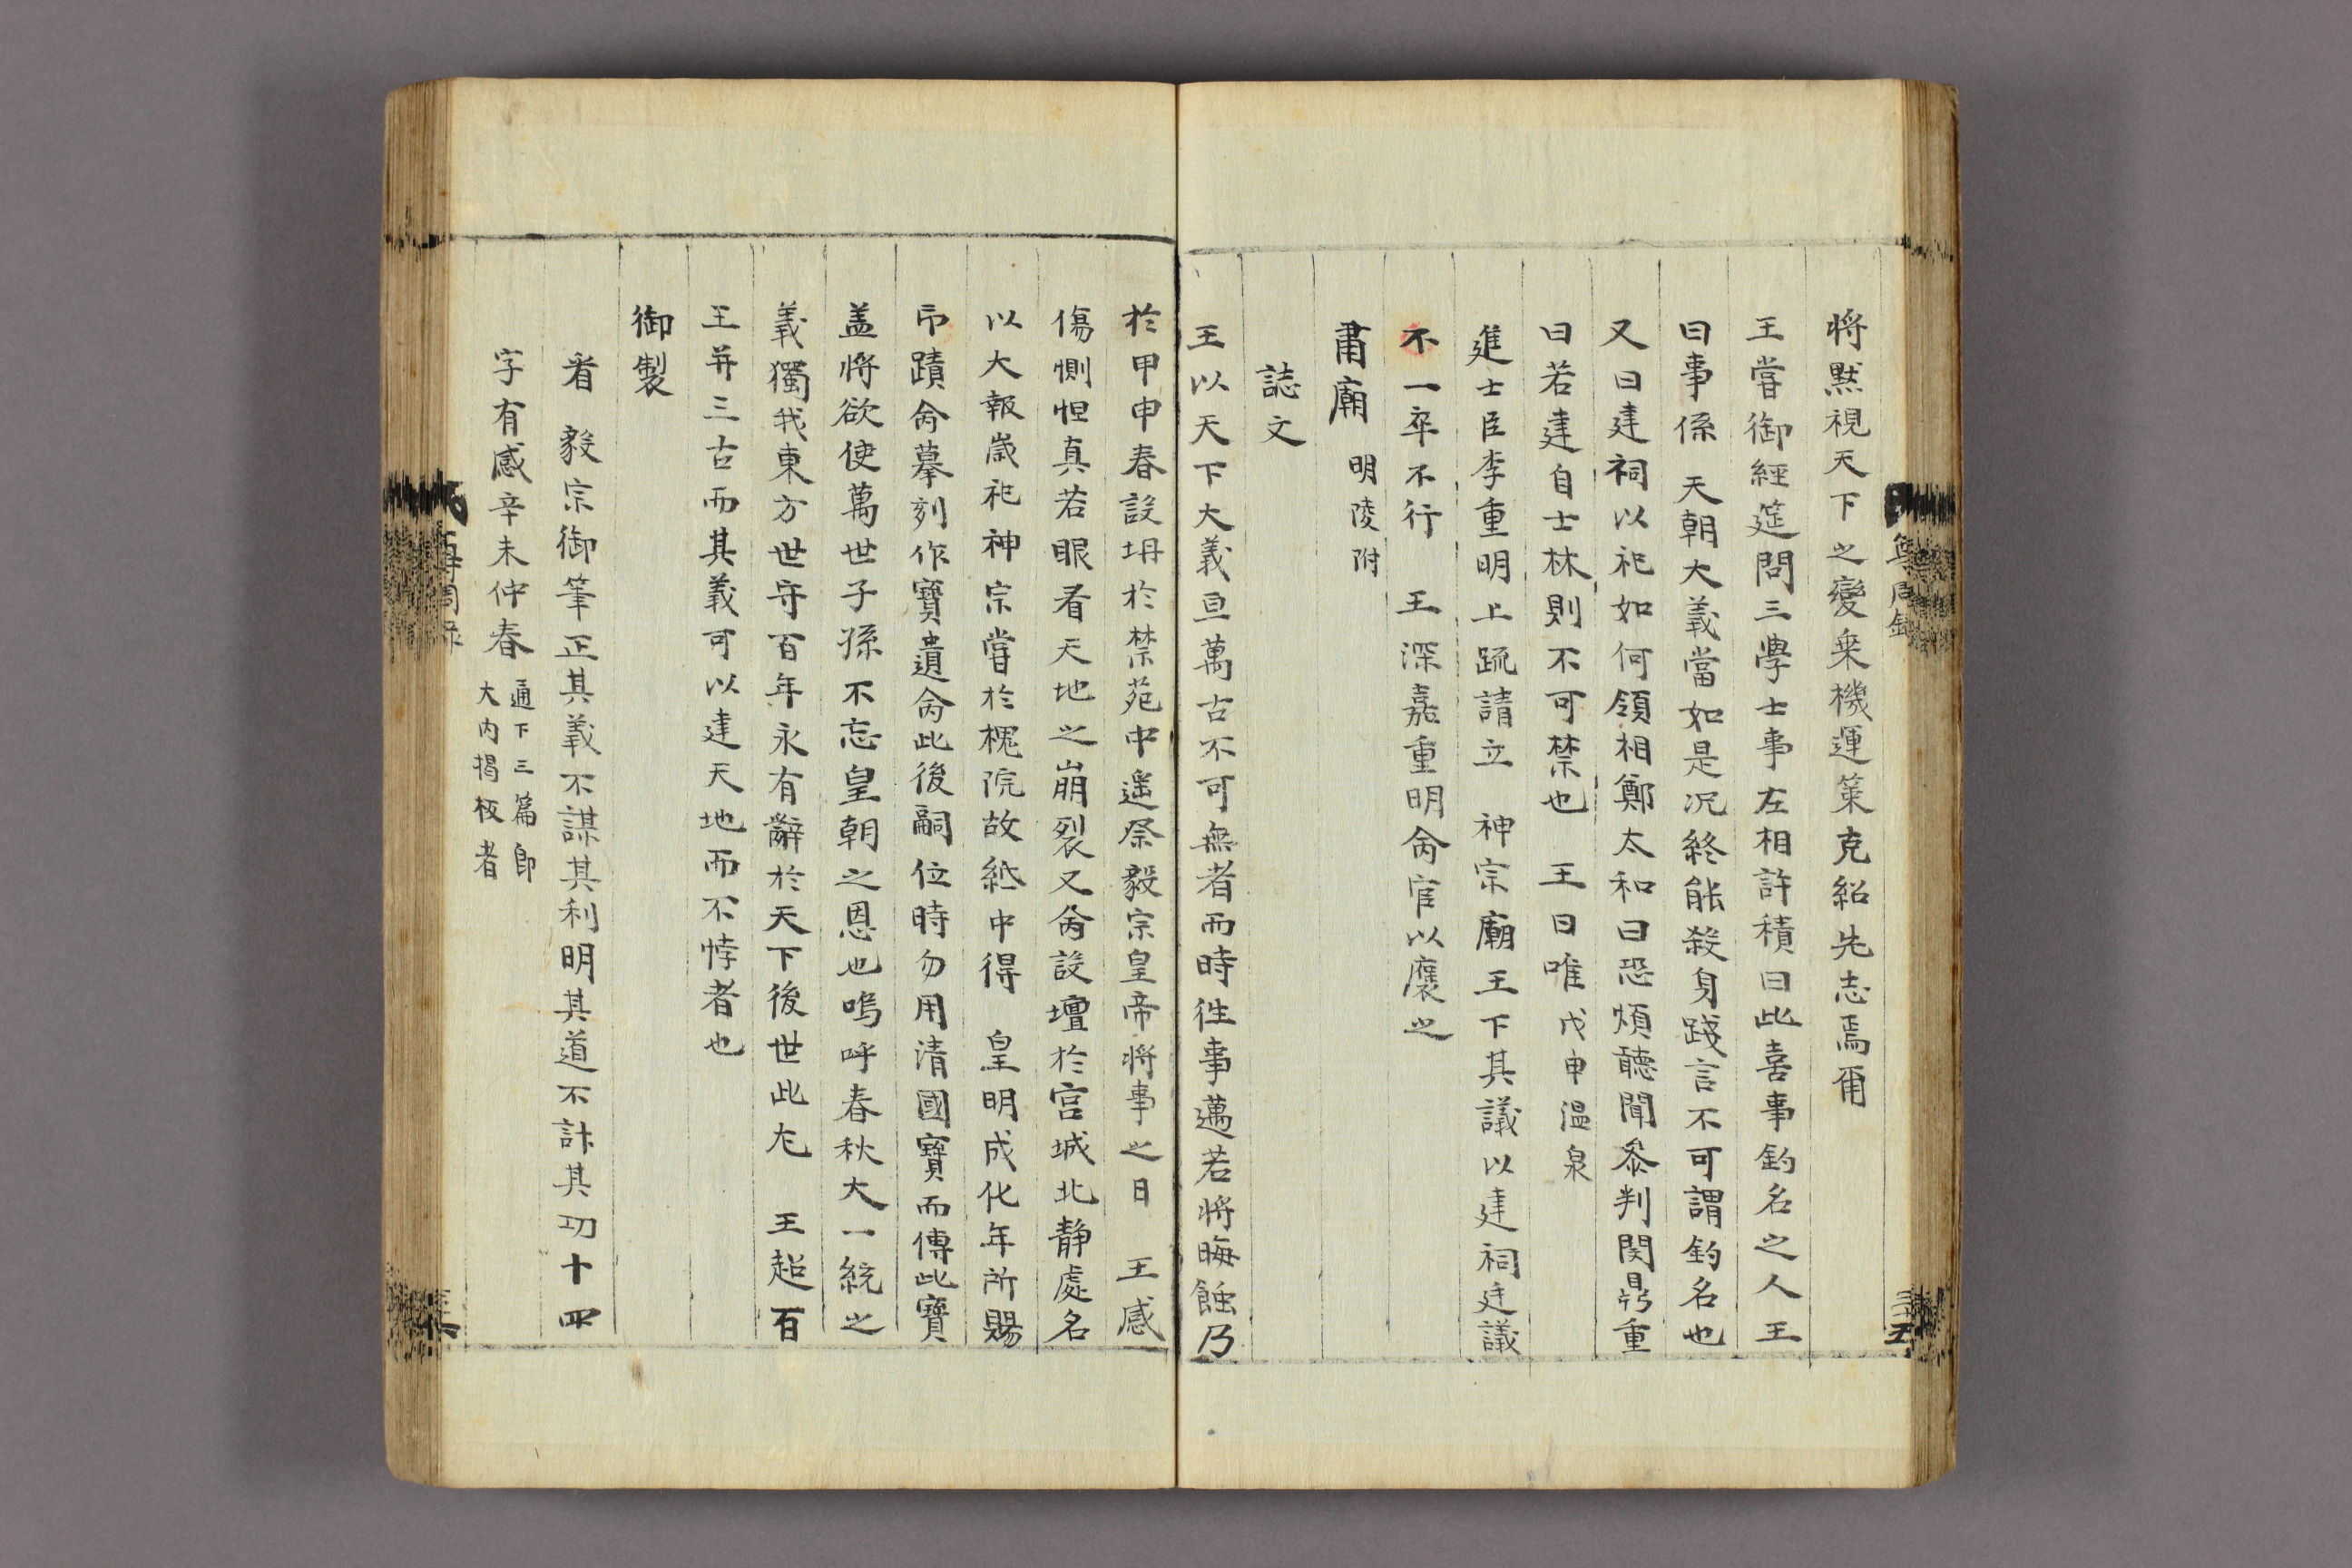 将黙視天下之變乗機運策克紹先志焉爾
王嘗御經筵問三學士事左相許積曰此喜事釣名之人王
曰事係 天朝大義當如是況終能殺身踐言不可謂釣名也
又曰建祠以祀如何領相鄭太和曰恐煩聽聞叅判閔鼎重
曰若建自士林則不可禁也 王曰唯 戊申溫泉
進士臣李重明上疏請立 神宗廟王下其議以建祠廷議
不一卒不行 王深嘉重明命官以褒之
肅廟 明陵附
誌文
王以天下大義亘萬古不可無者而時徃事邁若將晦蝕乃
於甲申春設坍於禁苑中遙祭毅宗皇帝将事之日 王感
傷惻怛真若眼看天地之崩裂又命設壇於宮城北静處名
以大報歲祀神宗嘗於槐院故紙中得 皇明成化年所賜
印蹟命摹刻作寶遺命此後嗣位時勿用清國寶而傳此寶
盖將欲使萬世子孫不忘皇朝之恩也嗚呼春秋大一統之
義獨我東方世守百年永有辭於天下後世此尤 王超百
王并三古而其義可以建天地而不悖者也
御製
看 毅宗御筆正其義不謀其利明其道不計其功十四
字有感辛未仲春 通下三篇卽
大内揭板者